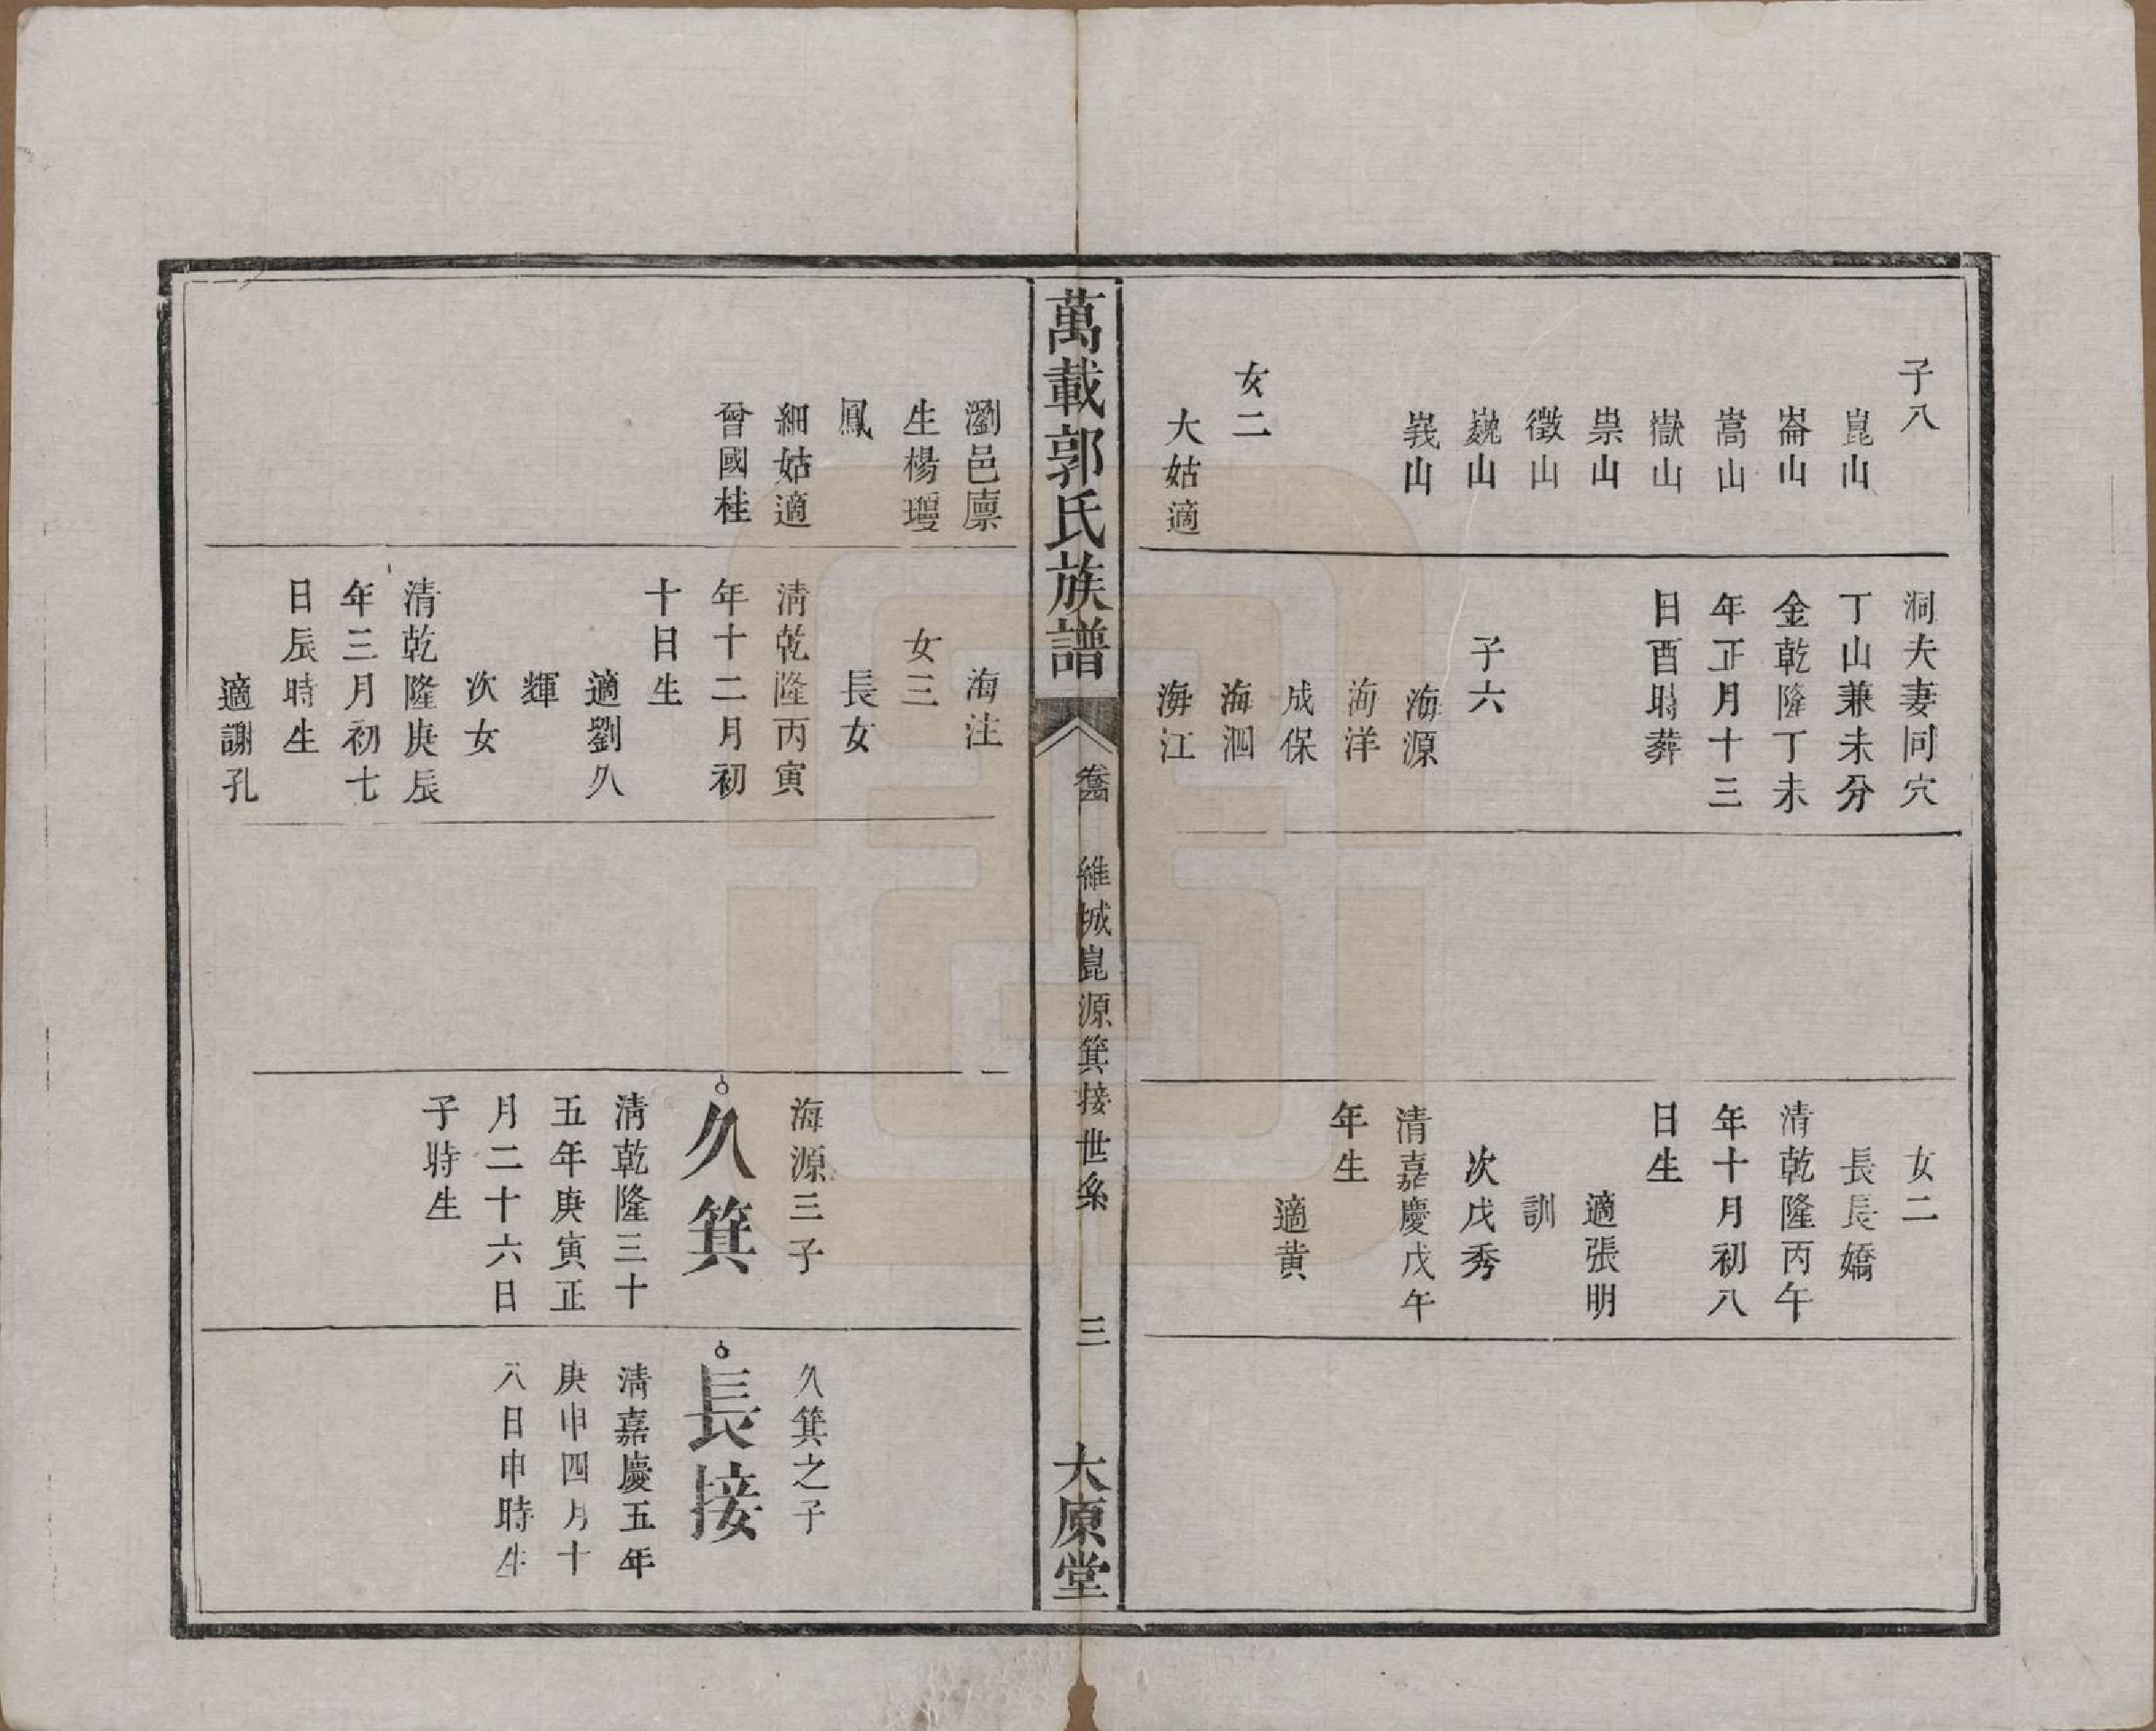 子八
崑山
崙山
嵩山
嶽山
祟山
徵山
巍山
峩山
女二
大姑適
洞夫妻同穴
丁山兼未分
金乾隆丁未
年正月十三
日酉時葬
子六
海源
海洋
成保
海泗
海江
女二
長長嬌
清乾隆丙午
年十月初八
日生
適張明
訓
次戊秀
清嘉慶戊午
年生
適黄
萬載郭氏族譜
維城崑源箕接世系
三
大原堂
瀏邑廩
生楊瓊
鳳
細姑適
曾國桂
海注
女三
長女
清乾隆丙寅
年十二月初
十日生
適劉久
輝
次女
清乾隆庚辰
年三月初七
日辰時生
適謝孔
海源三子
久箕
清乾隆三十
五年庚寅正
月二十六日
子時生
久箕之子
長接
清嘉慶五年
庚申四月十
八日申時生